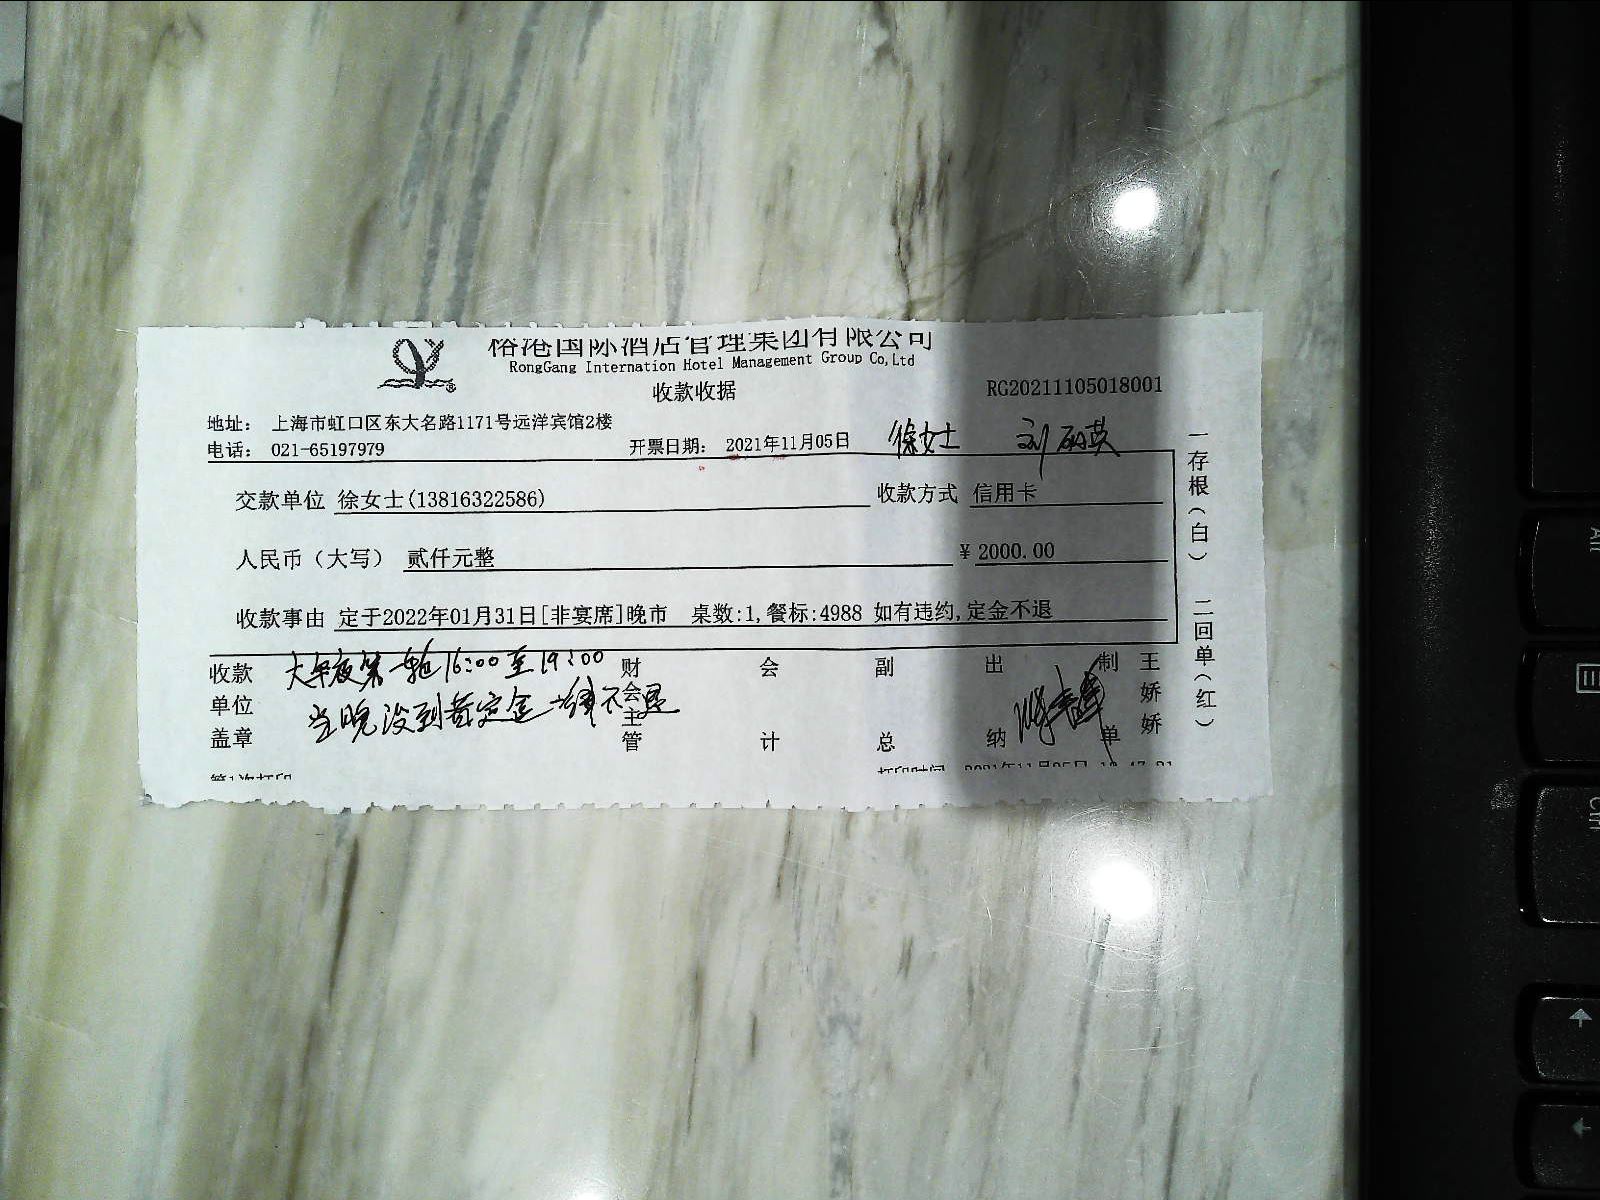 国际酒店管理集团有限公司
RongGang Internation Hotel Management Group Co,Ltd
收款收据
RG20211105018001
地址： 上海市虹口区东大名路1171号远洋宾馆2楼
电话： 021-65197979
开票日期： 2021年11月05日 徐女士
交款单位 徐女士(13816322586) 收款方式 信用卡
人民币（大写） 贰仟元整 ¥ 2000.00
收款事由 定于2022年01月31日[非宴席]晚市 桌数:1,餐标:4988 如有违约,定金不退
收款单位盖章
大年夜第一轮16:00至19:00
当晚没到者定金一律不退
财会主管
会计
副总
出纳
制单
王娇娇
一存根（白） 二回单（红）
第1次打印
打印时间 2021年11月05日
Alt
Ctrl